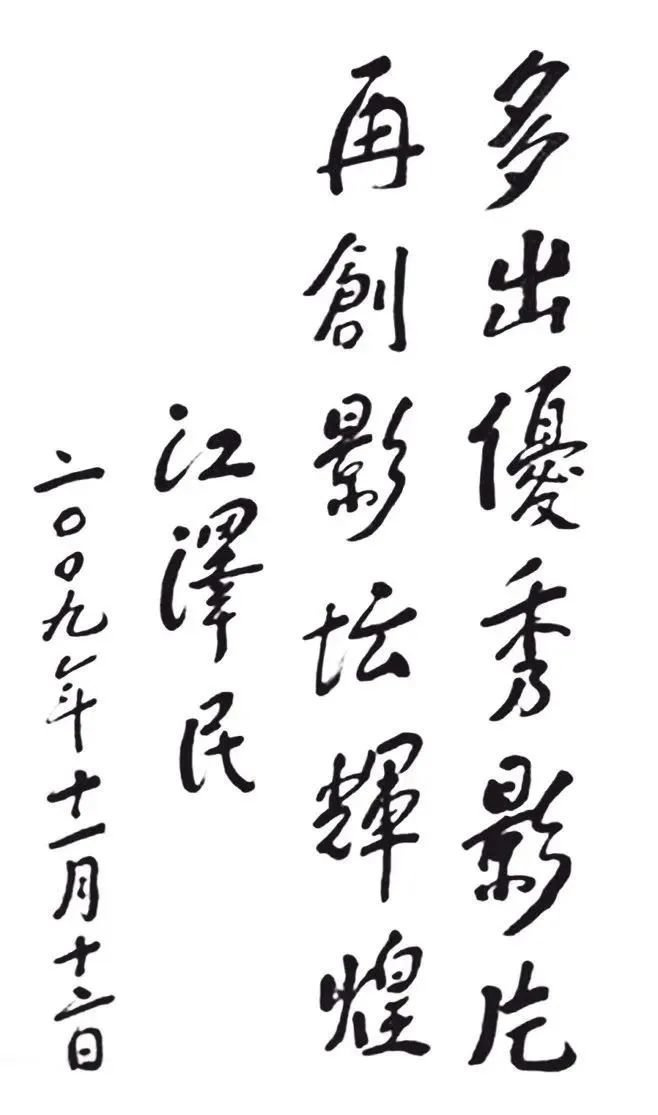 多出優秀影片
再創影坛輝煌
江澤民
二〇〇九年十一月十二日